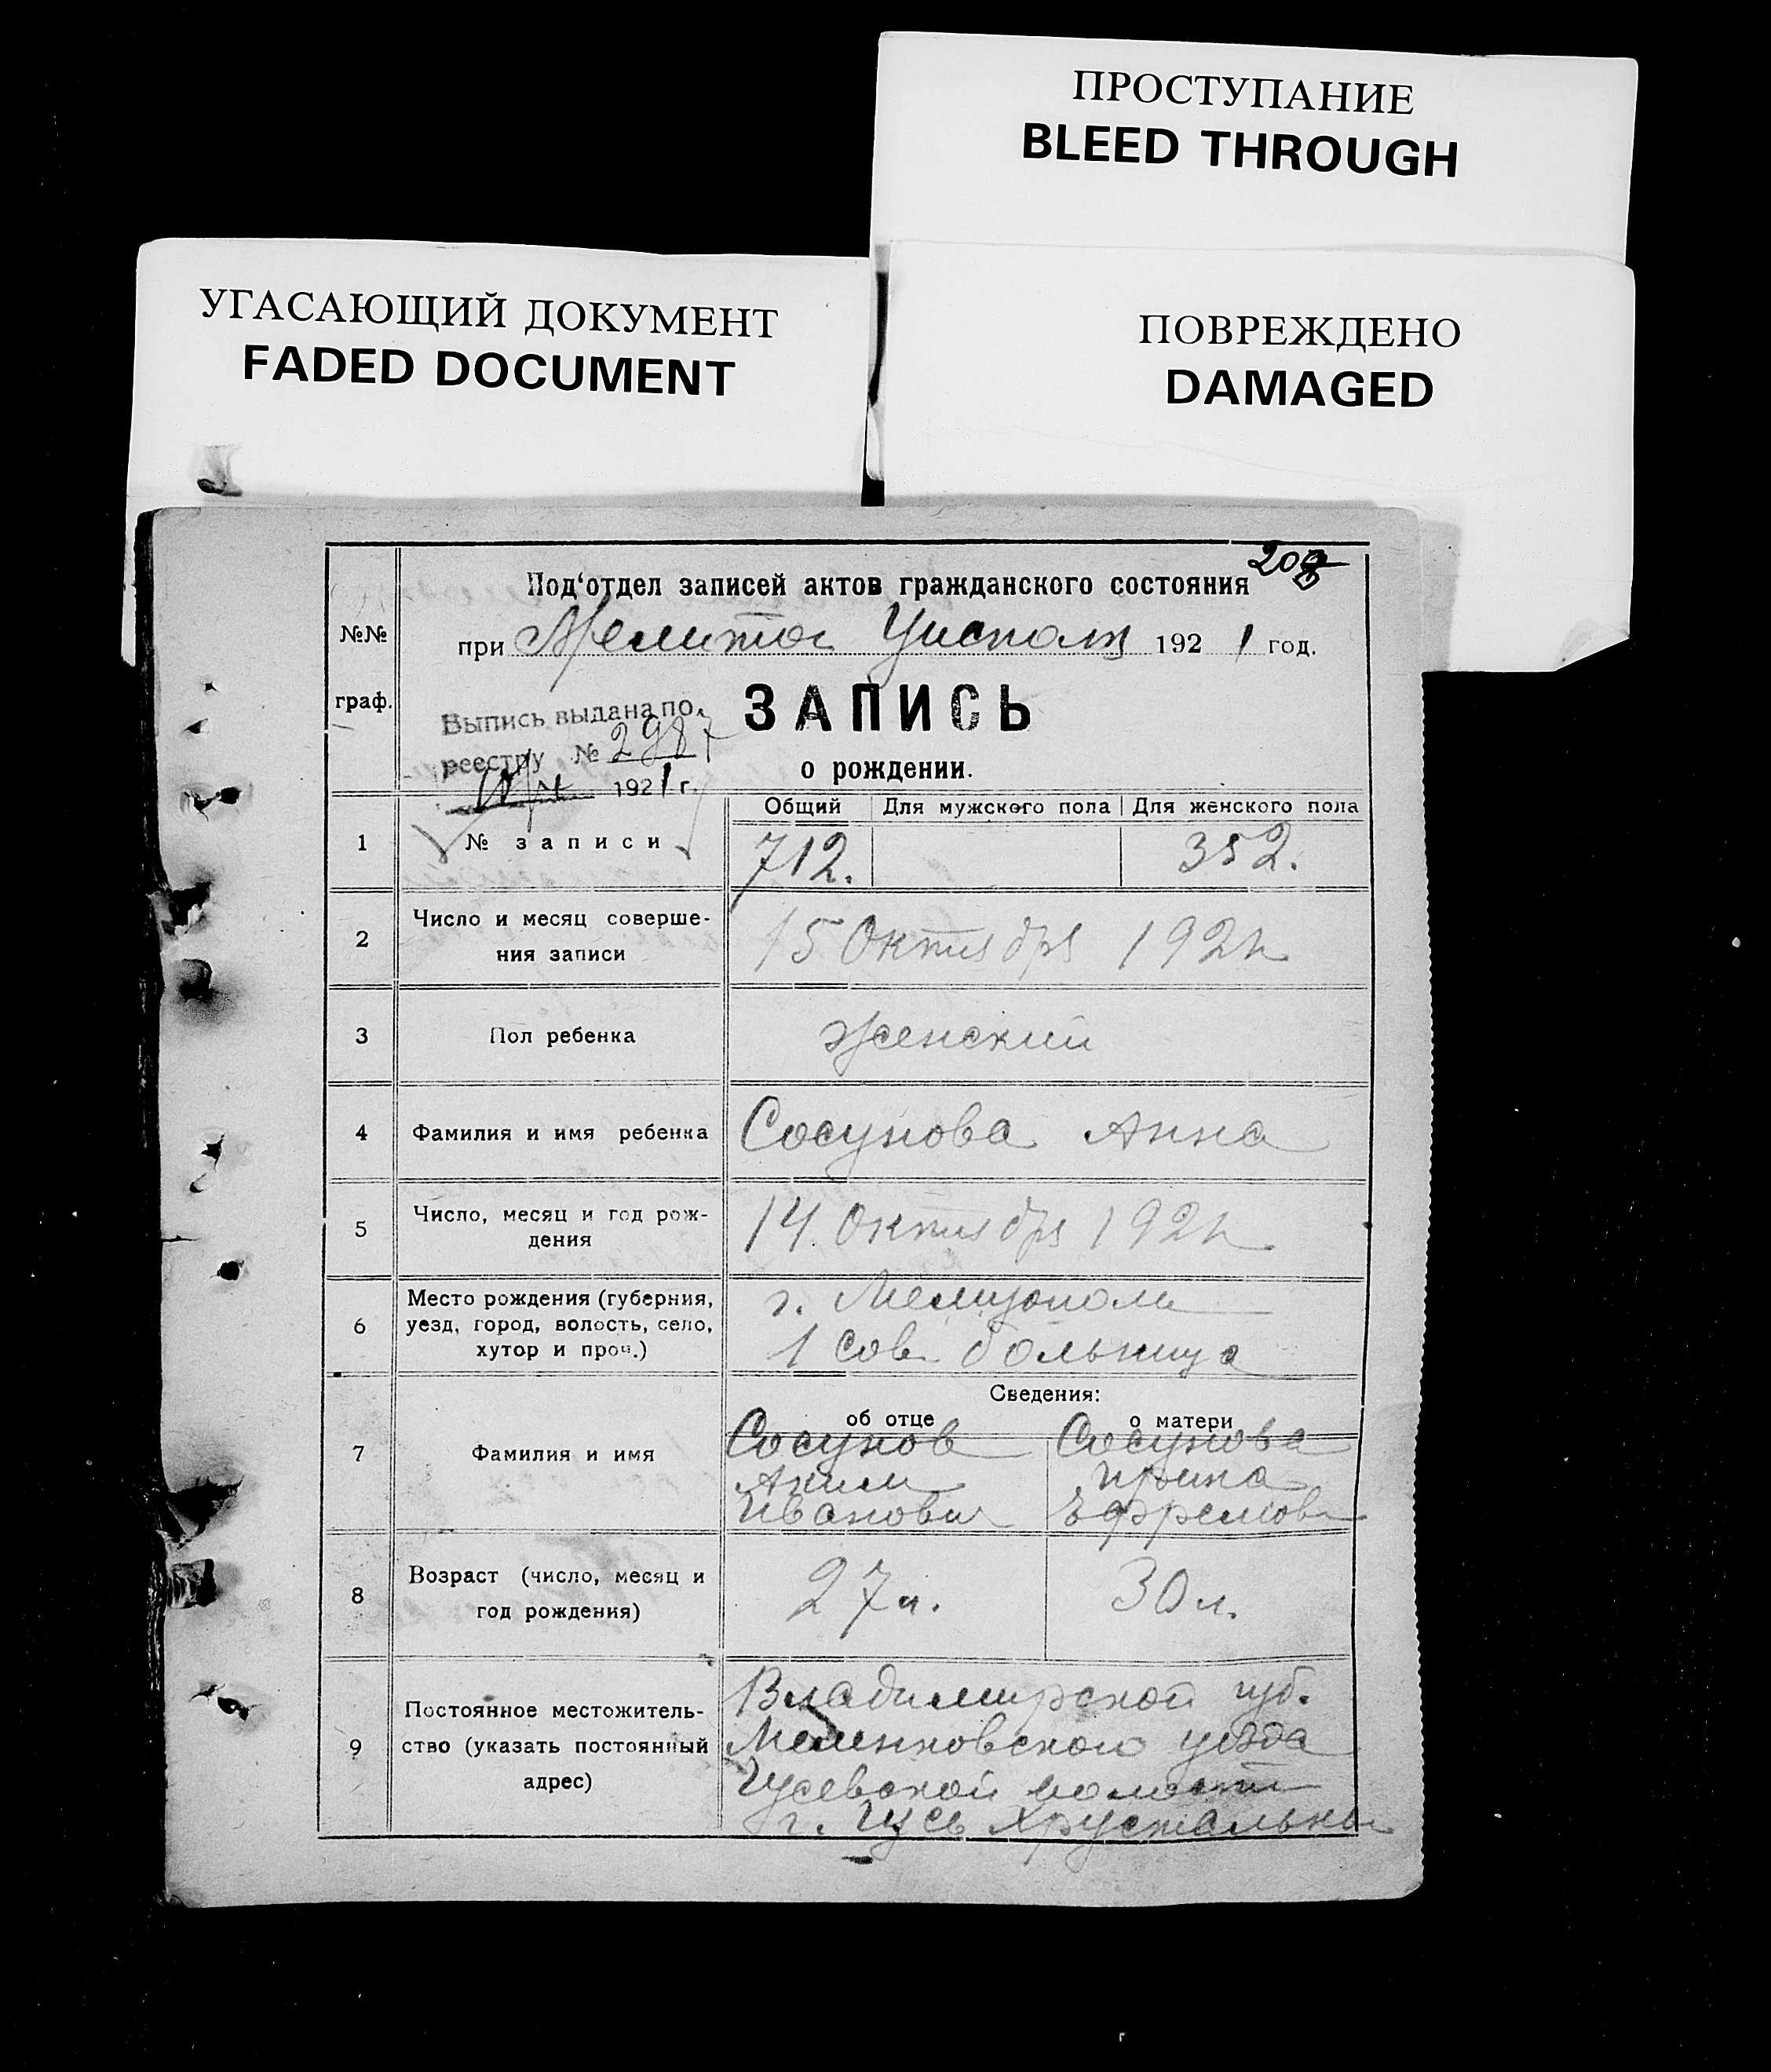 ПРОСТУПАНИЕ
BLEED THROUGH
УГАСАЮЩИЙ ДОКУМЕНТ
FADED DOCUMENT
ПОВРЕЖДЕНО
DAMAGED
208
№№
граф.
Под'отдел записей актов гражданского состояния
при Мелитоп Уисполк 1921 год.
Выпись выдана по
реестру № 2987
1921 г.
ЗАПИСЬ
о рождении.
Общий Для мужского пола Для женского пола
1 № записи 712. 352.
2 Число и месяц соверше-
ния записи
15 Октября 1921
3 Пол ребенка женский
4 Фамилия и имя ребенка Сосунова Анна
5 Число, месяц и год рож-
дения
14 Октября 1921
6 Место рождения (губерния,
уезд, город, волость, село,
хутор и проч.)
г. Мелитополь
1 Сов. больница
Сведения:
об отце о матери
7 Фамилия и имя
Сосунов
Аким
Иванович
Сосунова
Ирина
Ефремов
8 Возраст (число, месяц и
год рождения)
27 л. 30 л.
9 Постоянное местожитель-
ство (указать постоянный
адрес)
Владимирской губ.
Меленковского уезда
Гусевской волости
г. Гусь Хрустальный